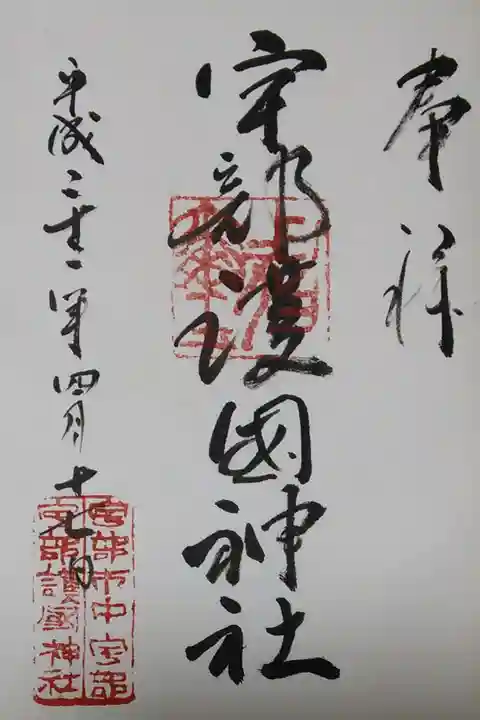 奉拝
宇部護國神社
平成二十一年四月十七日
宇部市中宇部
宇部護國神社